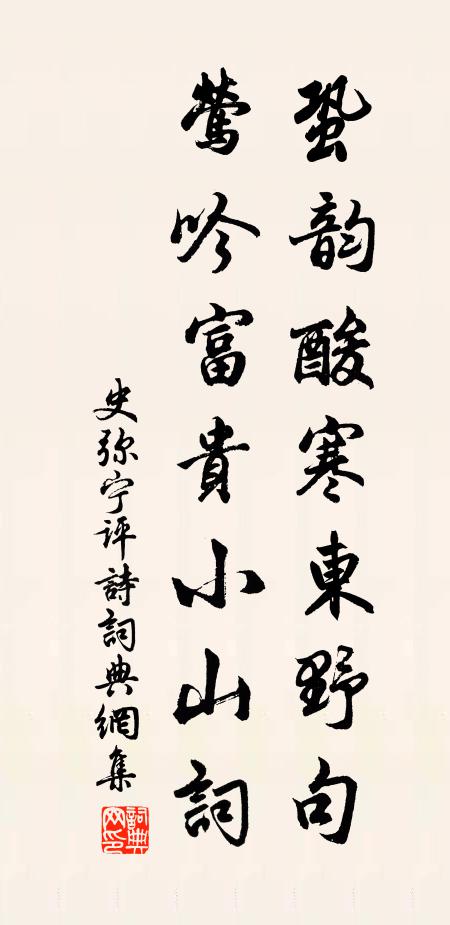 蛩韵酸寒東野句
鶯吟富貴小山詞
史弥宁评詩詞典網集
詞典网印